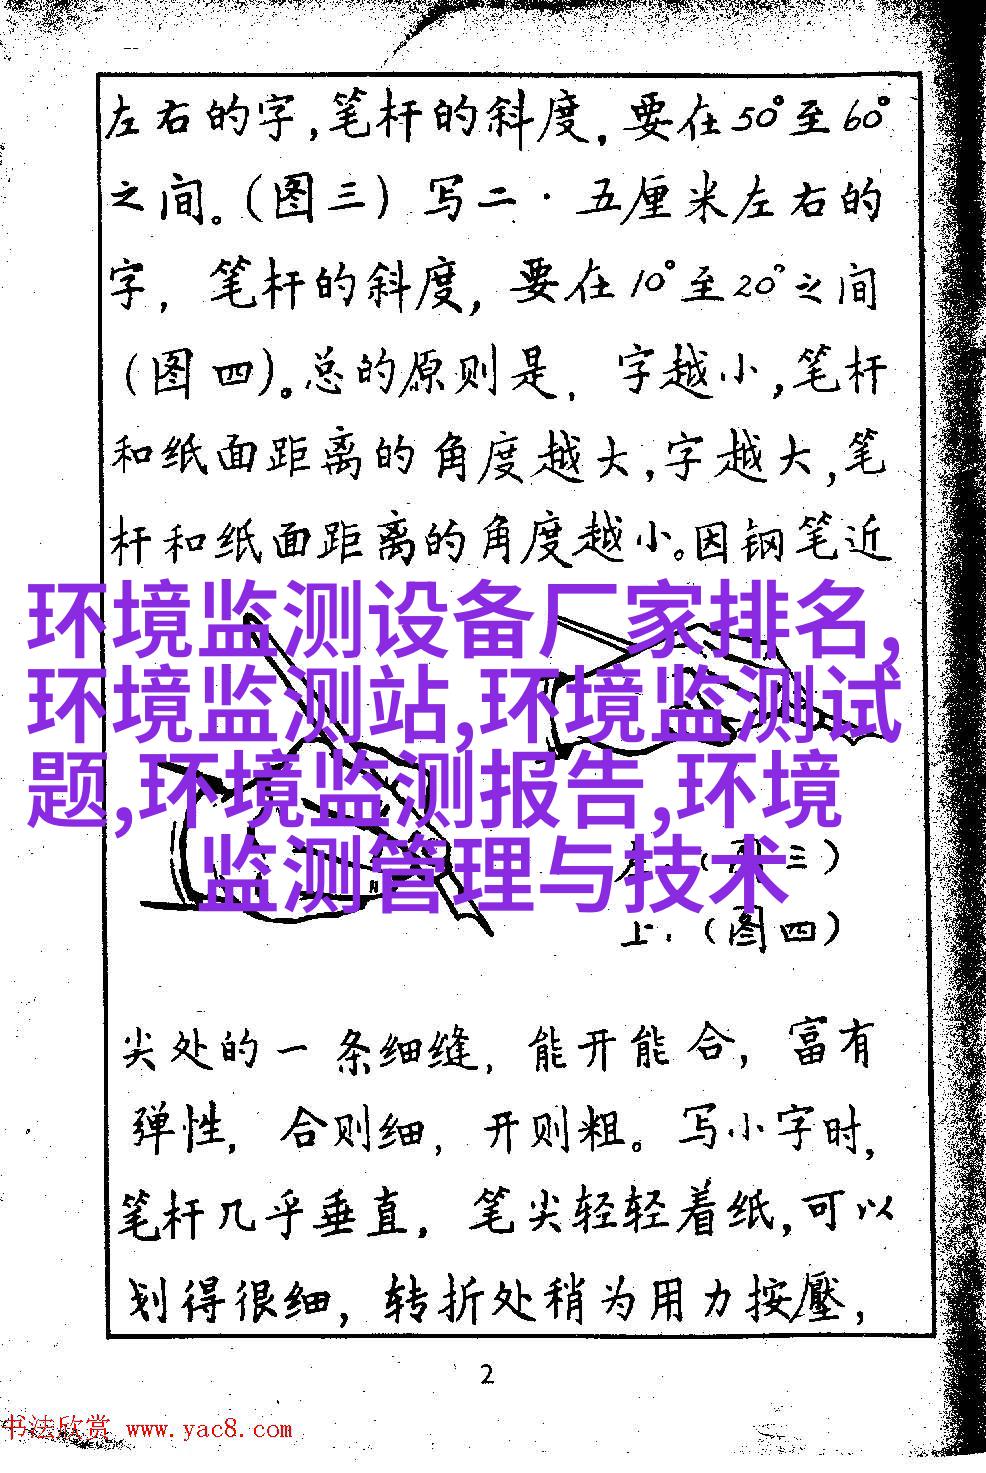 左右的字,笔杆的斜度,要在50°至60°
之间。(图三)写二·五厘米左右的
字,笔杆的斜度,要在10°至20°之间
(图四)。总的原则是,字越小,笔杆
和纸面距离的角度越大,字越大,笔
杆和纸面距离的角度越小。因钢笔近
环境监测设备厂家排名,
环境监测站,环境监测试
题,环境监测报告,环境
监测管理与技术
(图三)
上.(图四)
尖处的一条细缝,能开能合,富有
弹性,合则细,开则粗。写小字时,
笔杆几乎垂直,笔尖轻轻着纸,可以
划得很细,转折处稍为用力按壓,
2
书法欣赏 www.yac8.com